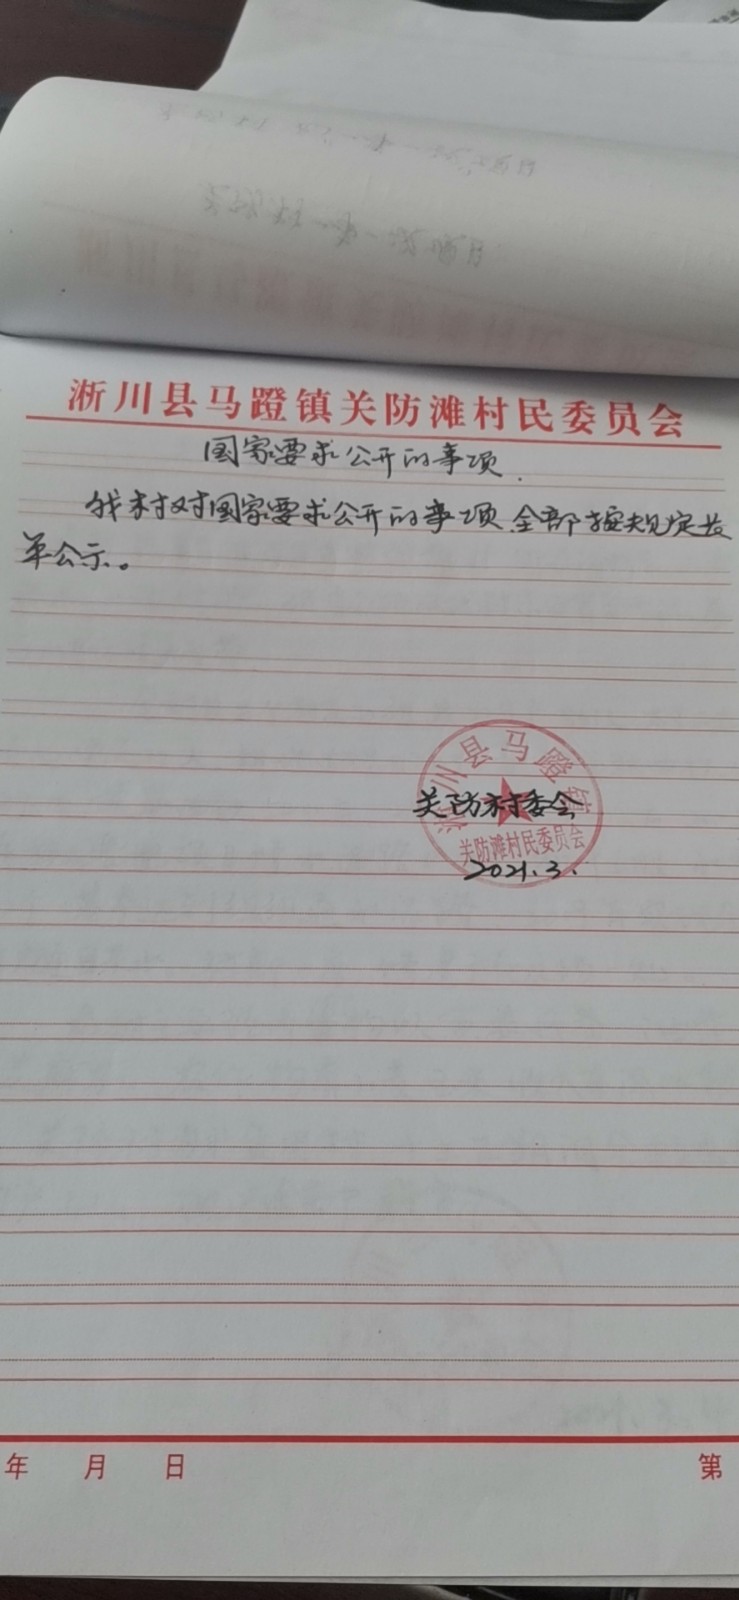 淅川县马蹬镇关防滩村民委员会
国家要求公开的事项.
我村对国家要求公开的事项全部按规定长
年公示。
淅川县马蹬镇
关防村委会
关防滩村民委员会
2021.3.
年 月 日 第